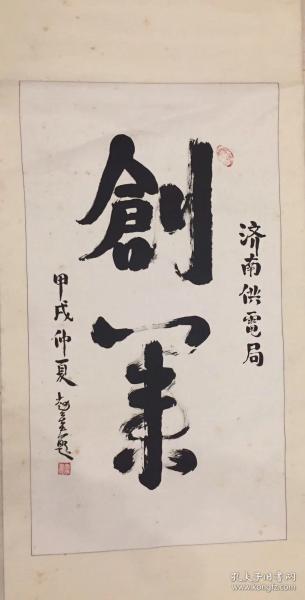 济南供電局
創業
甲戌仲夏
题
孔夫子旧书网